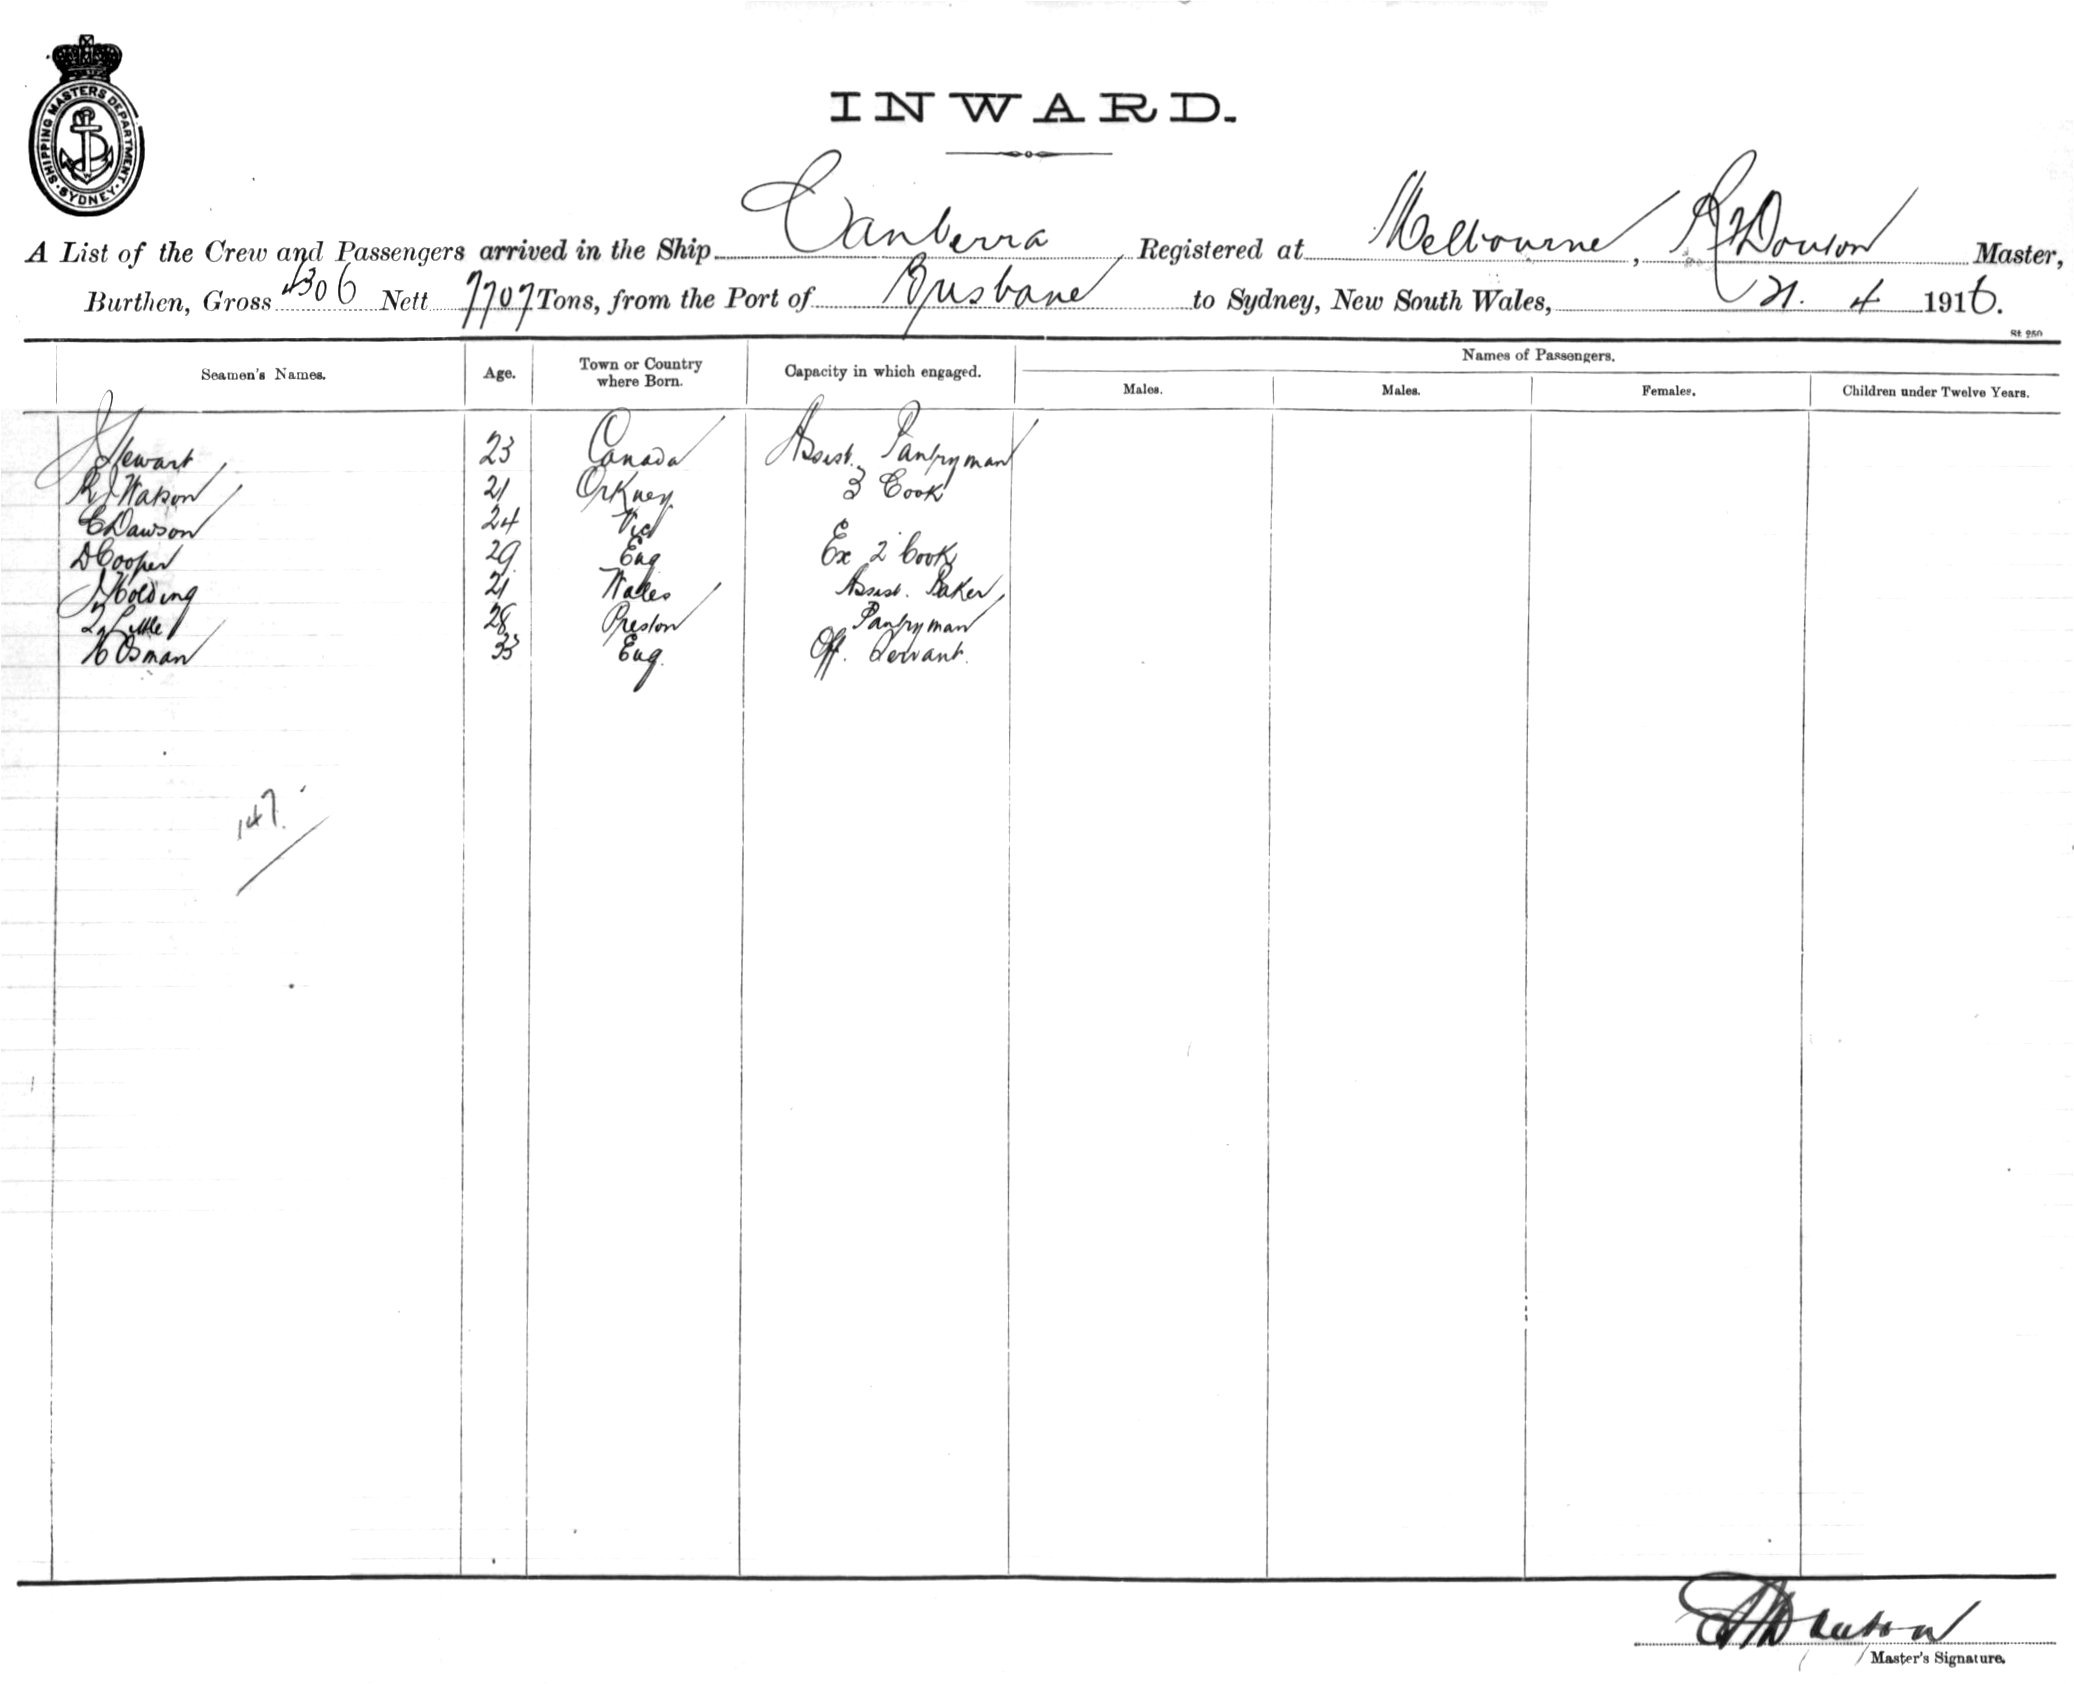 SHIPPING MASTERS DEPARTMENT
SYDNEY
INWARD.
A List of the Crew and Passengers arrived in the Ship Canberra, Registered at Melbourne, Master,
Burthen, Gross 4306 Nett 7707 Tons, from the Port of Brisbane to Sydney, New South Wales, 21. 4 1916.
St 250
Names of Passengers.
Seamen's Names. Age. Town or Country where Born. Capacity in which engaged. Males. Males. Females. Children under Twelve Years.
J Stewart 23 Canada Assist. Pantryman
R J Watson 21 Orkney 3 Cook
C Dawson 24 Vic
D Cooper 29 Eng Ex 2 Cook
J Holding 21 Wales Assist. Baker
Little 28 Preston Pantryman
H Osman 33 Eng. Off. Servant.
147.
Master's Signature.